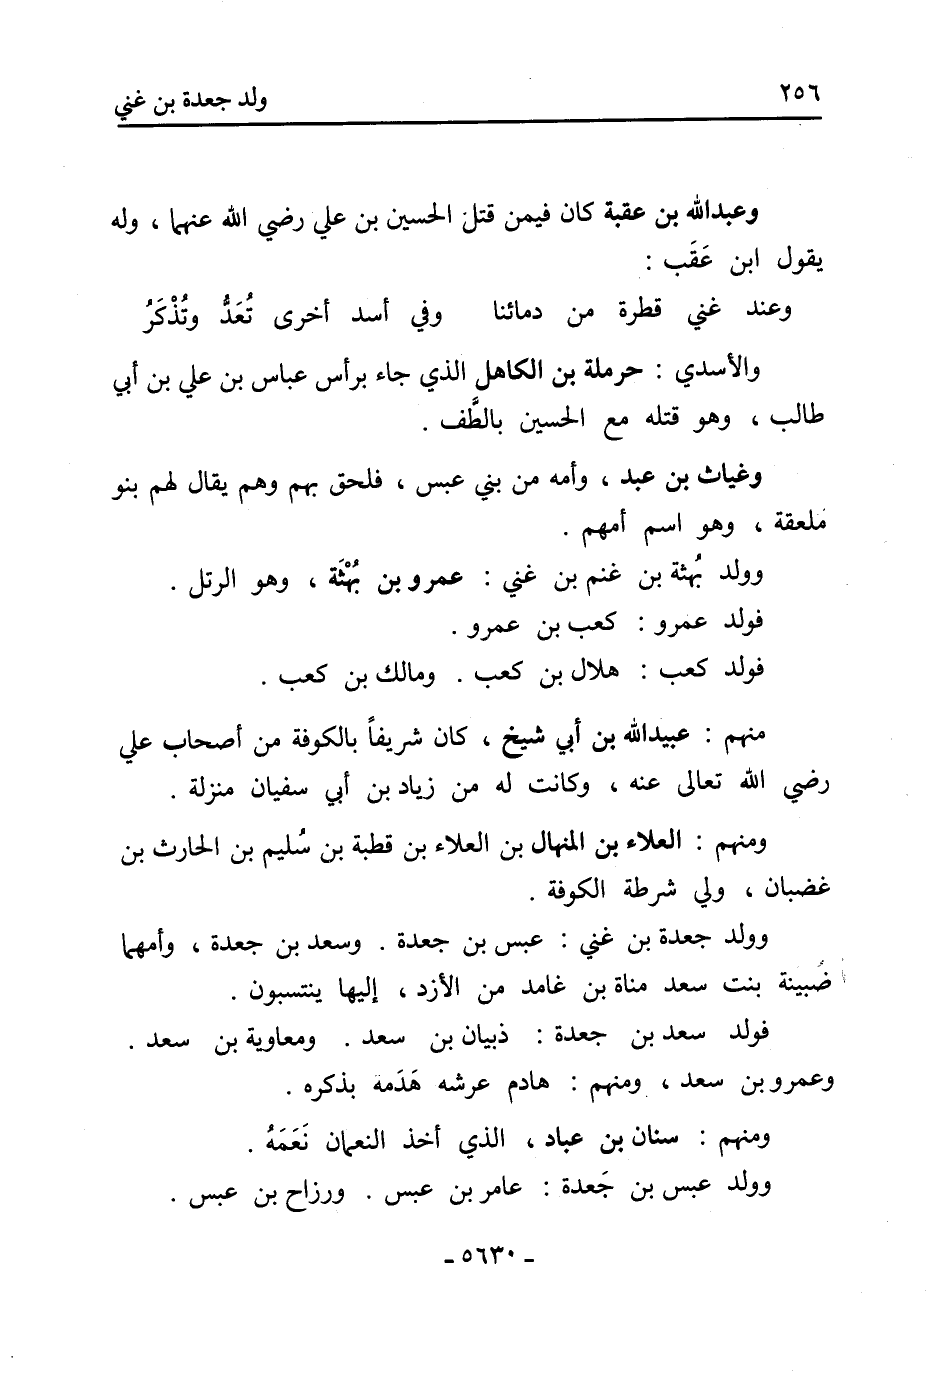 ٢٥٦
ولد جعدة بن غني
وعبدالله بن عقبة كان فيمن قتل الحسين بن علي رضي الله عنهما ، وله
يقول ابن عَقَب :
وعند غني قطرة من دمائنا وفي أسد أخرى تُعَدُّ وتُذْكَرُ
والأسدي : حرملة بن الكاهل الذي جاء برأس عباس بن علي بن أبي
طالب ، وهو قتله مع الحسين بالطَّف .
وغياث بن عبد ، وأمه من بني عبس ، فلحق بهم وهم يقال لهم بنو
مُلعقة ، وهو اسم أمهم .
وولد بُهثة بن غنم بن غني : عمرو بن بُهْثَة ، وهو الرتل .
فولد عمرو : كعب بن عمرو .
فولد كعب : هلال بن كعب . ومالك بن كعب .
منهم : عبيدالله بن أبي شيخ ، كان شريفاً بالكوفة من أصحاب علي
رضي الله تعالى عنه ، وكانت له من زياد بن أبي سفيان منزلة .
ومنهم : العلاء بن المنهال بن العلاء بن قطبة بن سُليم بن الحارث بن
غضبان ، ولي شرطة الكوفة .
وولد جعدة بن غني : عبس بن جعدة . وسعد بن جعدة ، وأمهما
ضُبينة بنت سعد مناة بن غامد من الأزد ، إليها ينتسبون .
فولد سعد بن جعدة : ذبيان بن سعد . ومعاوية بن سعد .
وعمرو بن سعد ، ومنهم : هادم عرشه هَدَمه بذكره .
ومنهم : سنان بن عباد ، الذي أخذ النعمان نَعَمَهُ .
وولد عبس بن جَعدة : عامر بن عبس . ورزاح بن عبس .
ـ ٥٦٣٠ ـ